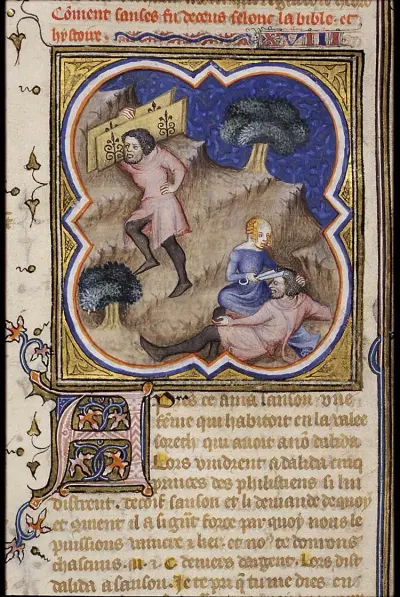 Coment sanses fu deceus selonc la bible et
hystoire. XVIII
Apres ce ama sanson une
feme qui habitoit en la valee
sorech qui auoit a nõ dalida.
Lors vindrent a dalida cinq
princes des philistiens si lui
distrent. decoif sanson et li demande de quoy
et comẽt il a si grãt force par quoy nous le
puissions vaincre et lier. et nous te donrons
chascuns .m. et .c. deniers dargent. Lors dist
dalida a sanson. Je te pri q tu me dies en